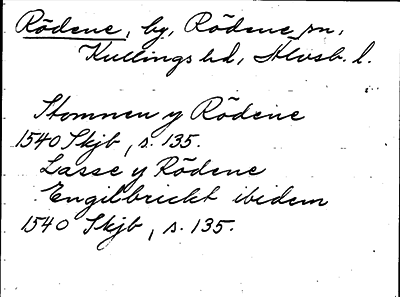 Rödene, by, Rödene sn,
Kullings hd, Älvsb. l.
Stomnen y Rödene
1540 Skjb, s. 135.
Lasse y Rödene
Engilbrickt ibidem
1540 Skjb, s. 135.